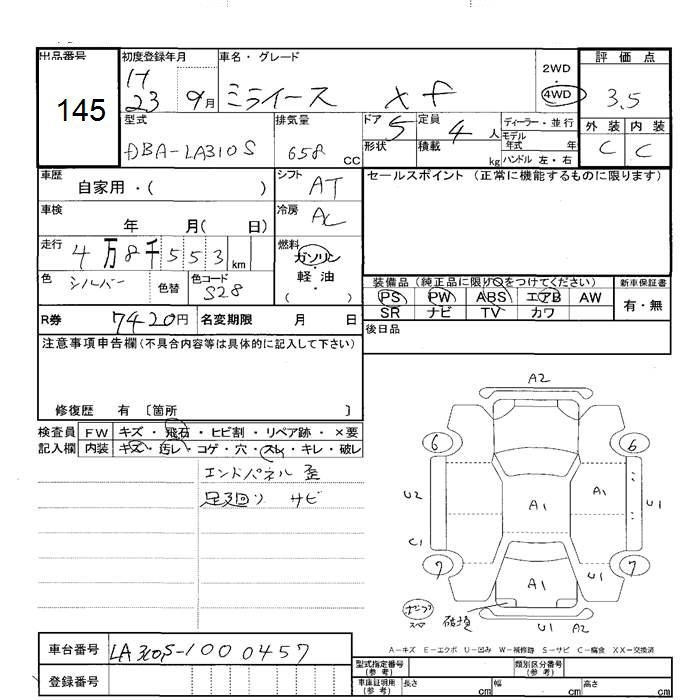 出品番号
145
初度登録年月
H
23 9月
車名・グレード
ミライース xf
2WD
・
4WD
評価点
3.5
型式
DBA-LA310S
排気量
658 CC
ドア 5
定員 4 人
形状
積載 kg
ディーラー・並行
モデル
年式 年
ハンドル 左・右
外装 内装
C C
車歴
自家用・( )
シフト
AT
車検
年 月( 日)
冷房
AC
走行
4万8千553km
燃料
ガソリン
・
軽・油
( )
色 シルバー
色替
色コード
S28
R券 7420円
名変期限 月 日
セールスポイント (正常に機能するものに限ります)
装備品 (純正品に限り○をつけてください)
新車保証書
PS PW ABS エアB AW
有・無
SR ナビ TV カワ
後日品
注意事項申告欄(不具合内容等は具体的に記入して下さい)
修復歴 有 〔箇所 〕
検査員
記入欄
FW キズ・飛石・ヒビ割・リペア跡・×要
内装 キズ・汚レ・コゲ・穴・スレ・キレ・破レ
エンドパネル 歪
足廻り サビ
A2
6 6
U2 A1 A1 U1
C1
7 7
A1 U1
破損
U1 A2
A=キズ E=エクボ U=凹み W=補修跡 S=サビ C=腐食 XX=交換済
車台番号
LA310S-1000457
登録番号
型式指定番号
(参考)
類別区分番号
(参考)
車庫証明用
(参考)
長さ cm
幅 cm
高さ cm